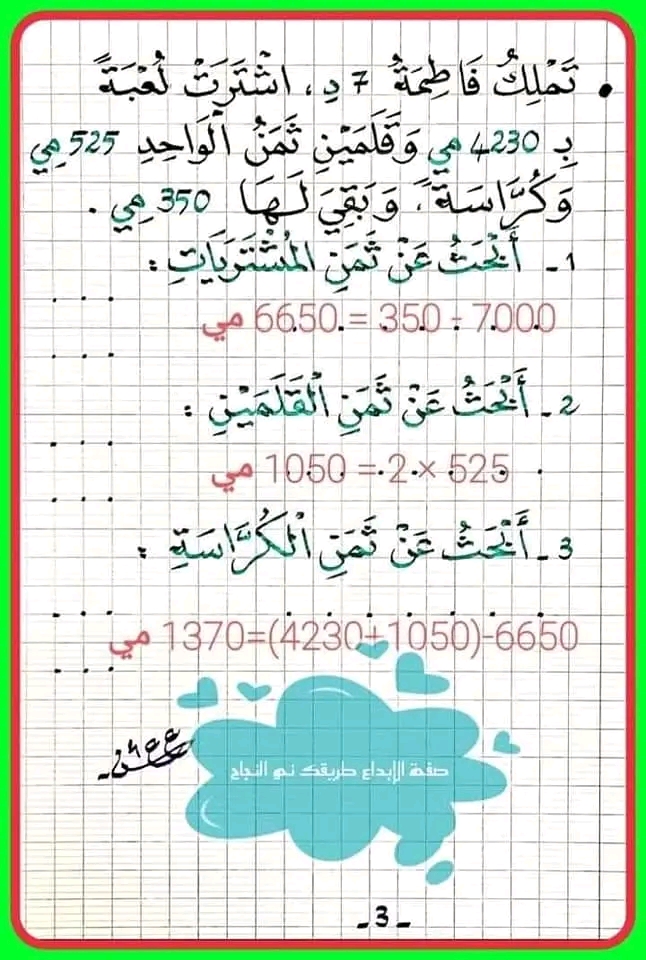 • تَمْلِكُ فَاطِمَةُ 7 دِ، اشْتَرَتْ لُعْبَةً
بِـ 4230 مي وَقَلَمَيْنِ ثَمَنُ الْوَاحِدِ 525 مِي
وَكُرَّاسَةً، وَبَقِيَ لَـهَا 350 مِي .
1 - أَبْحَثُ عَنْ ثَمَنِ المُشْتَرَيَاتِ :
7000 - 350 = 6650 مي
2 - أَبْحَثُ عَنْ ثَمَنِ الْقَلَمَيْنِ :
525 × 2 = 1050 مي
3 - أَبْحَثُ عَنْ ثَمَنِ الْكُرَّاسَةِ :
6650-(4230+1050)=1370 مي
صفحة الإبداع طريقك نحو النجاح
- 3 -